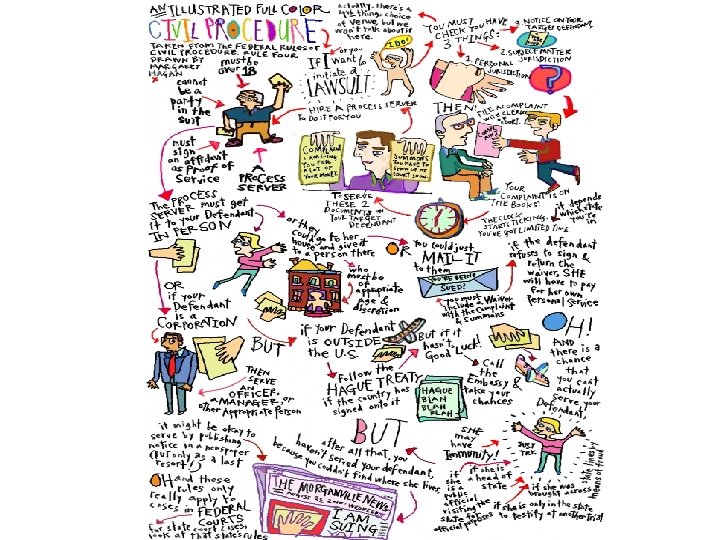 AN ILLUSTRATED FULL COLOR
CIVIL PROCEDURE
TAKEN FROM THE FEDERAL RULES OF
CIVIL PROCEDURE, RULE FOUR
DRAWN BY
MARGARET
HAGAN
actually, there's a
4th thing, choice
of venue, but we
won't talk about it
here.
IF I want to
initiate a
LAWSUIT
I DO!
YOU MUST
CHECK YOU HAVE
3 THINGS:
1. PERSONAL
JURISDICTION
2. SUBJECT MATTER
JURISDICTION
3. NOTICE ON YOUR
TARGET DEFENDANT
?
THEN
FILE A COMPLAINT
W/ CLERK
COURT.
YOUR
COMPLAINT IS ON
THE BOOKS!
THE CLOCK
STARTS TICKING.
YOU'VE GOT LIMITED TIME
it depends
which state
you're in
or you
HIRE A PROCESS SERVER
To do it FOR YOU
must be
over 18
cannot
be a
party
in the
suit
must
sign
an affidavit
as proof of
Service
A
PROCESS
SERVER
COMPLAINT
I AM SUING
YOU FOR
A LOT OF
YOUR MONEY
SUMMONS
YOU HAVE TO
SHOW UP AT
COURT SOON
TO SERVE
THESE 2
DOCUMENTS ON
YOUR TARGET
DEFENDANT
The PROCESS
SERVER must get
it to your Defendant
IN PERSON
or they
could go to her
house and give it
to a person there
who
must be
of
appropriate
age &
discretion
OR
You could just
MAIL IT
to them
YOU'RE BEING
SUED!
you must
include a Waiver
with the Complaint
& Summons
if the defendant
refuses to sign &
return the
waiver, SHE
will have to pay
for her own
Personal Service
OR
if your
Defendant
is a
CORPORATION
THEN
SERVE
AN
OFFICER,
a MANAGER, or
other Appropriate Person
BUT
if your Defendant
is OUTSIDE
the U.S.
Follow the
HAGUE TREATY
if the country has
signed onto it
HAGUE
BLAH
BLAH
BLAH
But if it
hasn't,
Good Luck!
Call
the
Embassy &
take your
chances
OH!
AND
there is a
chance
that
you can't
actually
serve your
Defendant,
SHE
may
have
Immunity!
JUST
TRY.
if she is
a head of
state
if
she
is a
public
official
visiting the
state for
official purposes
if she was
brought across
state lines by
means of fraud
if she is only in the state
to testify at another trial
BUT
after all that, you
haven't served your defendant,
because you couldn't find where she lives
it might be okay to
serve by publishing
notice in a newspaper
(but only as a last
resort!)
THE MORGANVILLE NEWS
I AM
SUING
OH and those
rules only
really apply to
cases in FEDERAL
COURTS
for state court cases,
look at that state's rules